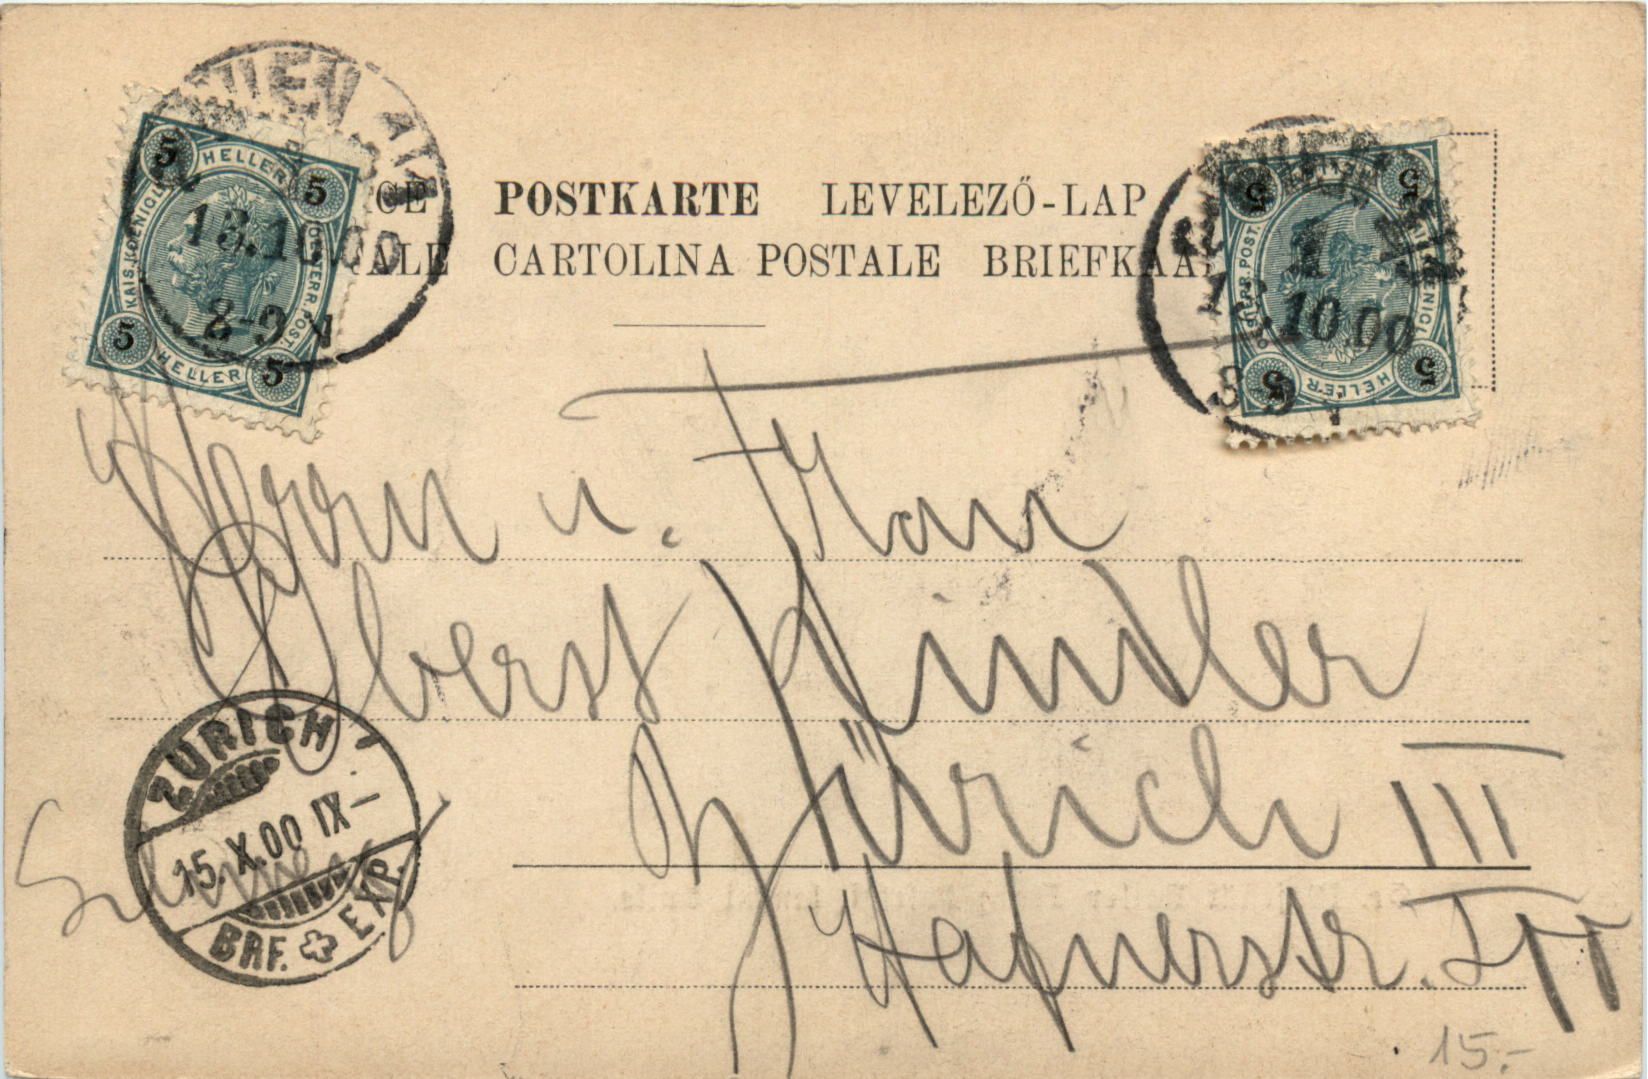 WIEN
5 HELLER 5
KAIS. KOENIGL. OESTERR. POST.
5 HELLER 5
13.10.00
8-9 N
CE POSTKARTE LEVELEZŐ-LAP
ALE CARTOLINA POSTALE BRIEFKAA
5 5
KAIS. KOENIGL. OESTERR. POST.
5 HELLER 5
10.00
Herrn u. Frau
Oberst Kindler
Zürich III
Hafnerstr.
Schweiz
ZÜRICH
15.X.00 IX-
BRF. EXP.
15.-